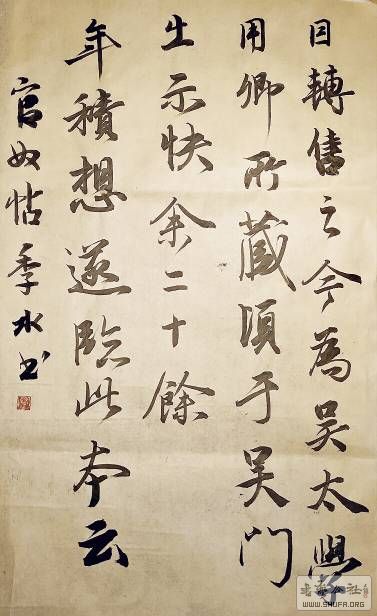 日轉售之今為吳太學
用卿所藏頃于吳門
出示快余二十餘
年積想遂臨此本云
官奴帖季水书
WWW.SHUFA.ORG